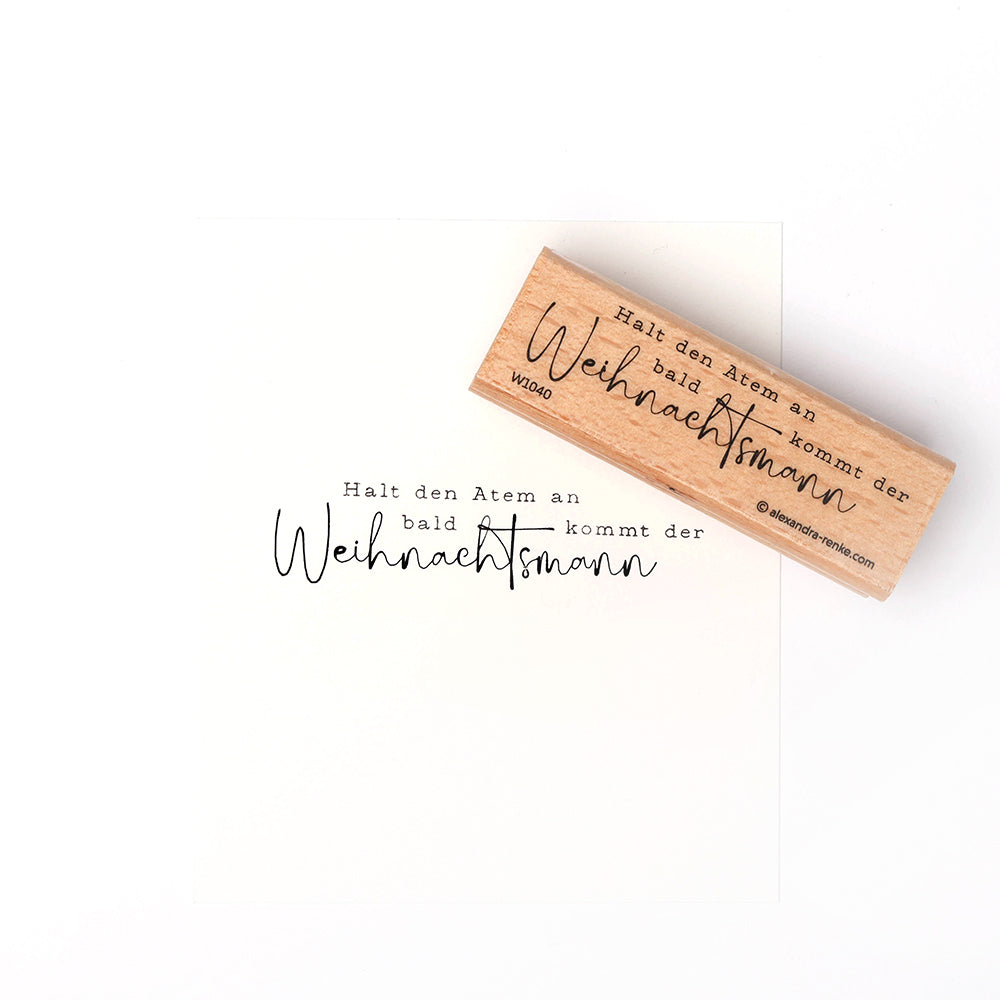 Halt den Atem an
bald kommt der
Weihnachtsmann
W1040
© alexandra-renke.com
Halt den Atem an
bald kommt der
Weihnachtsmann